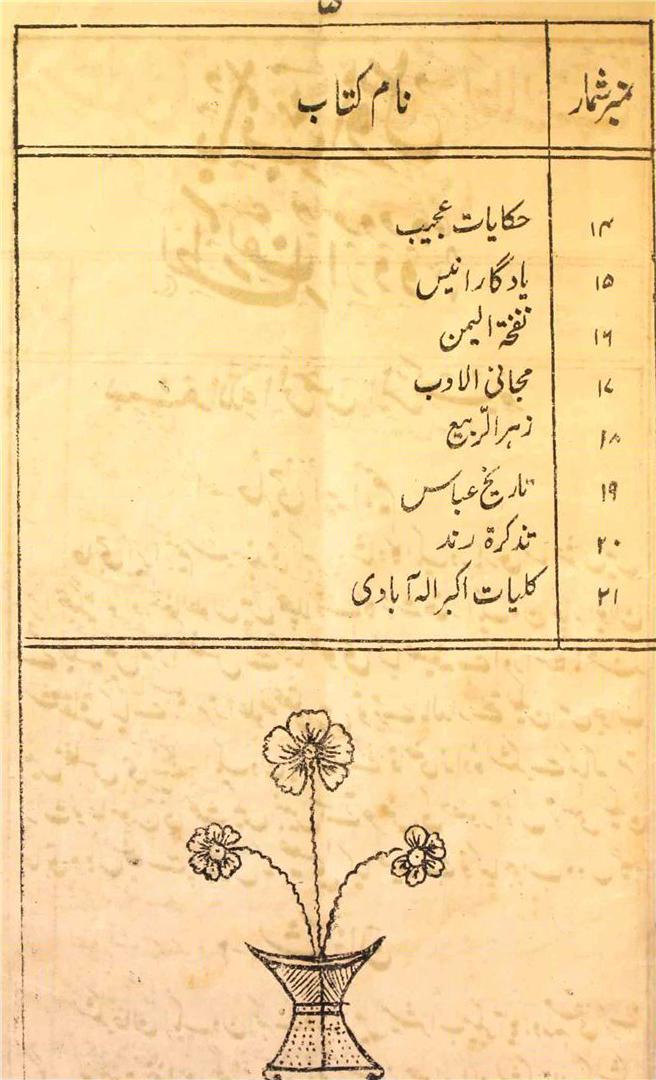 ۵
نمبر شمار نام کتاب
۱۴ حکایات عجیب
۱۵ یادگار انیس
۱۶ نفحۃ الیمن
۱۷ مجانی الادب
۱۸ زہر الرّبیع
۱۹ تاریخ عباس
۲۰ تذکرۃ رند
۲۱ کلیات اکبر الہ آبادی